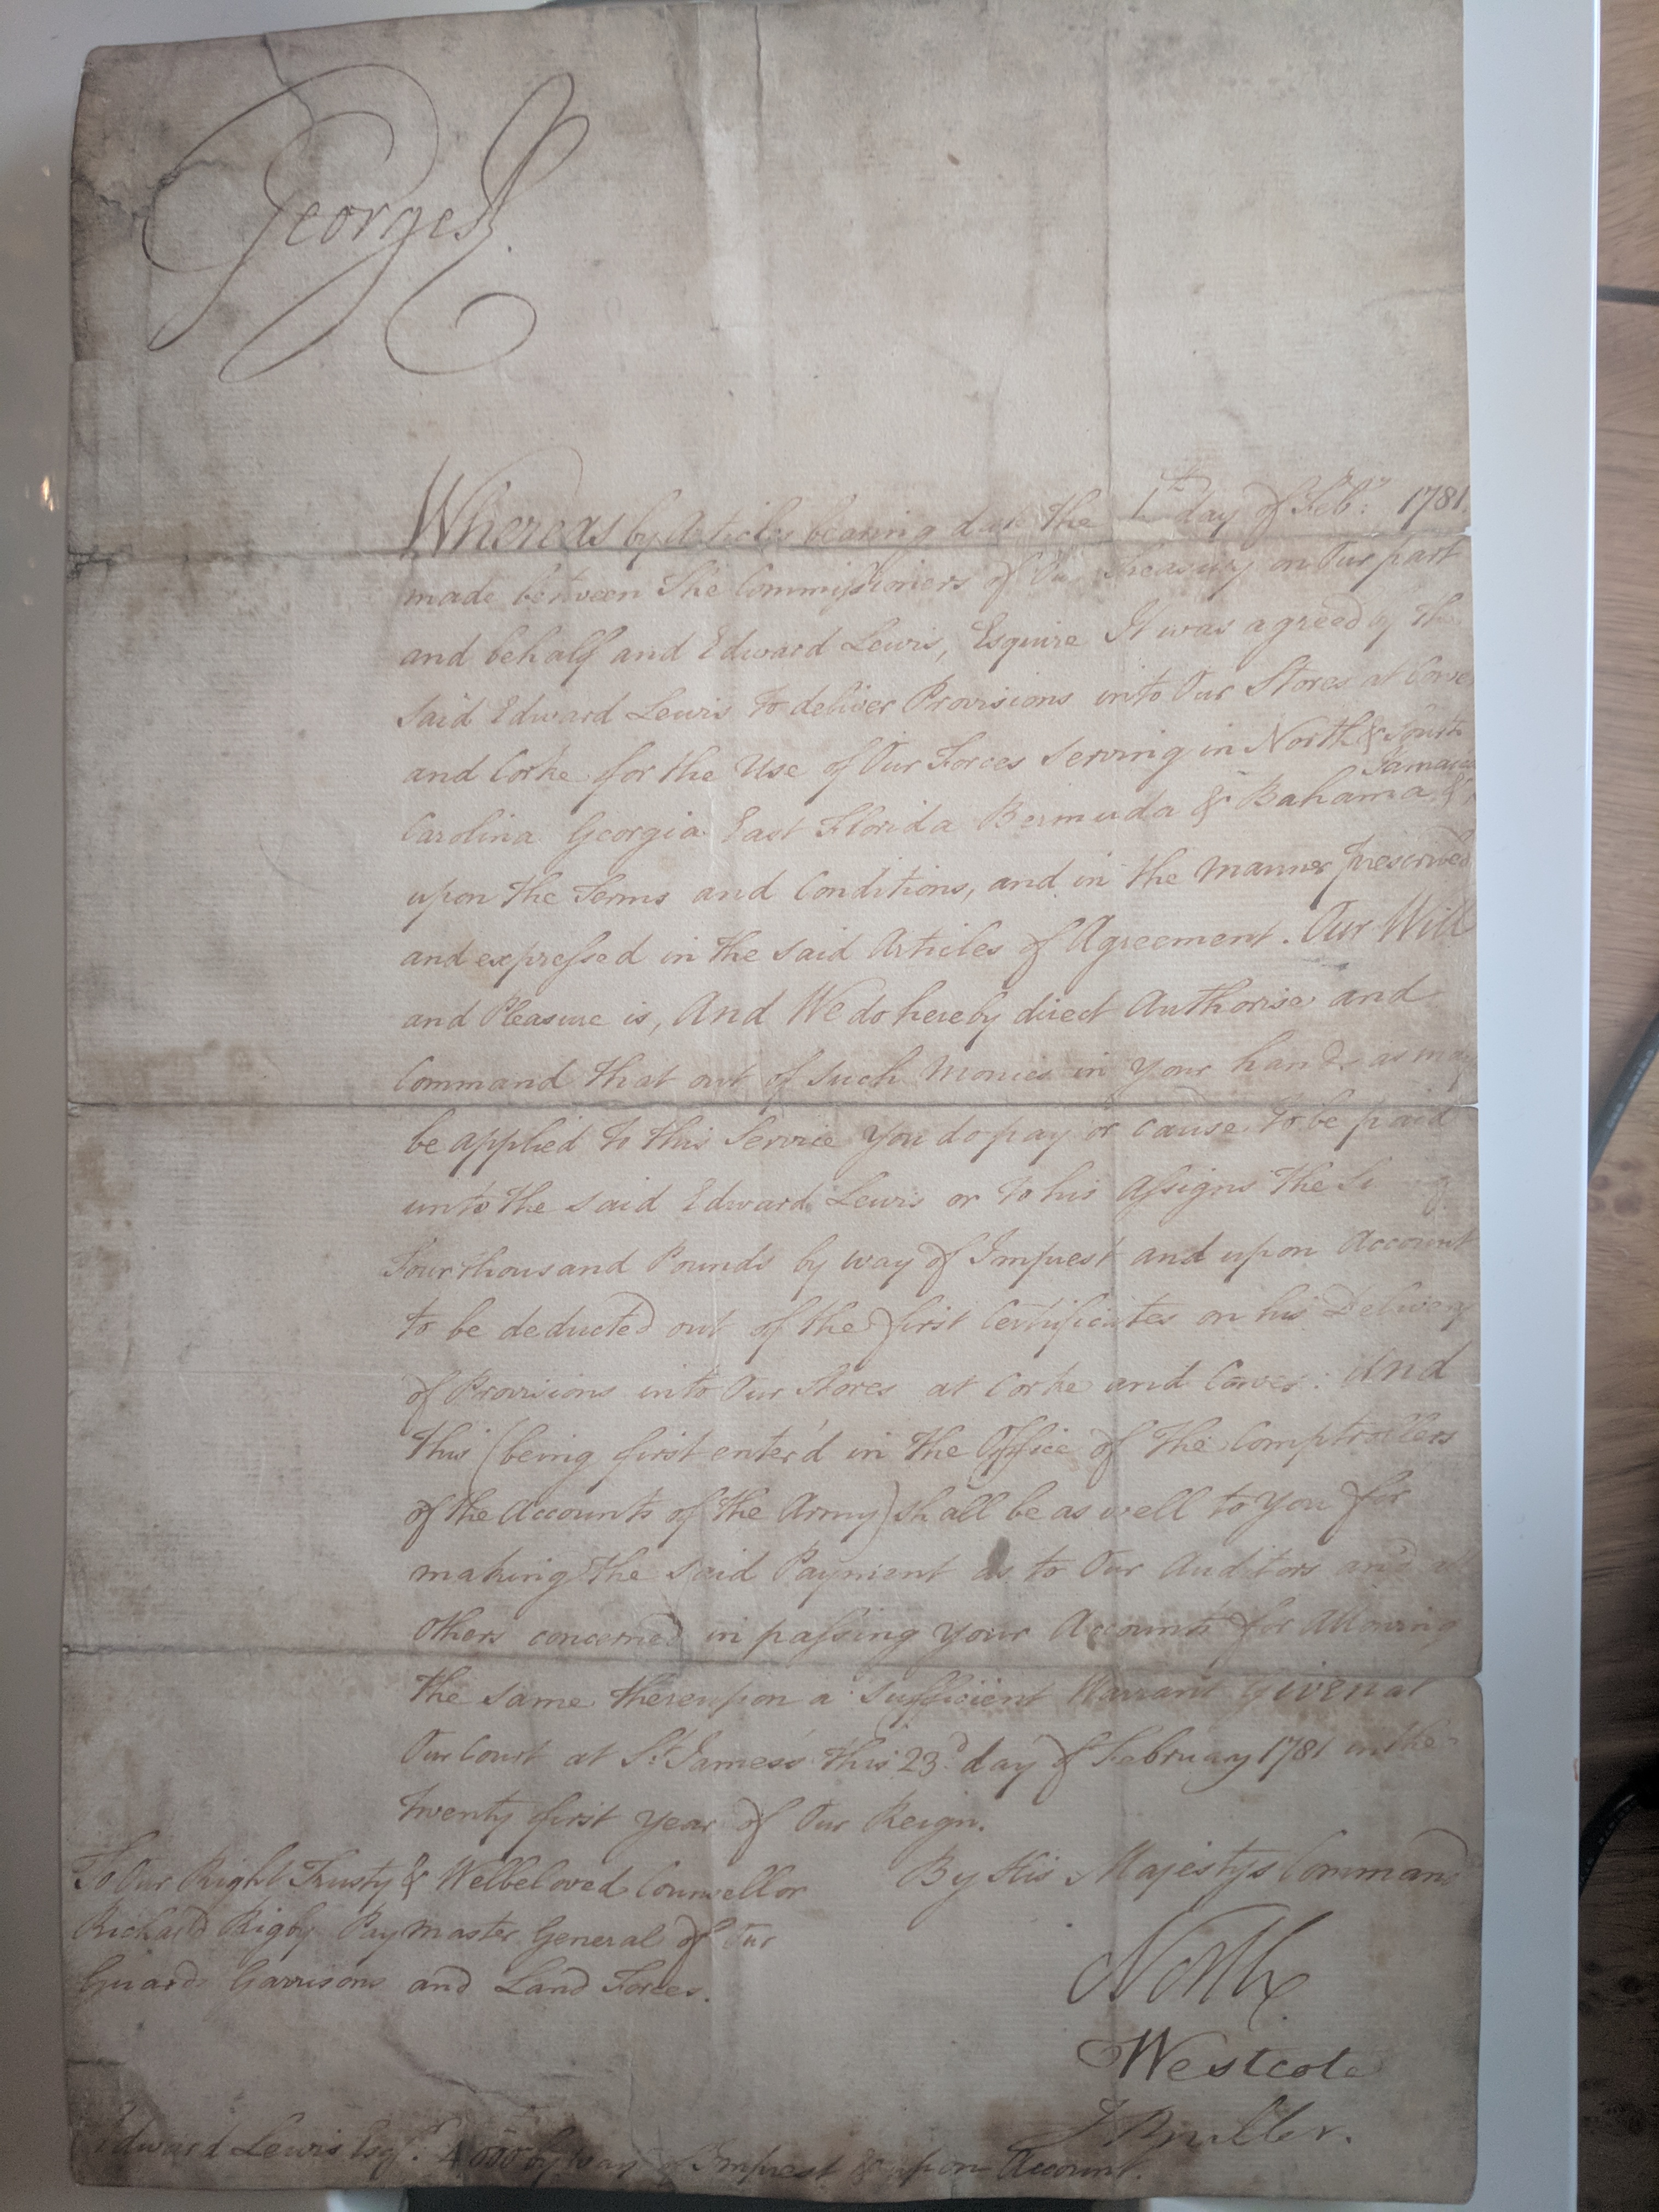 George R.
Whereas by Articles bearing date the 1st day of Feb.ry 1781.
made between The Commissioners of Our Treasury on Our part
and behalf and Edward Lewis, Esquire It was agreed by the
said Edward Lewis to deliver Provisions into Our Stores at Cowes
and Corke for the Use of Our Forces serving in North & South
Carolina Georgia East Florida Bermuda & Bahama & Jamaica
upon the Terms and Conditions, and in the manner prescribed
and expressed in the said Articles of Agreement. Our Will
and Pleasure is, And We do hereby direct Authorise and
Command that out of such Monies in Your hands as may
be applied to this Service You do pay or cause to be paid
unto the said Edward Lewis or to his Assigns the
Four thousand Pounds by way of Imprest and upon Account
to be deducted out of the first Certificates on his Delivery
of Provisions into Our Stores at Corke and Cowes: And
this (being first enter'd in the Office of the Comptrollers
of the Accounts of the Army) shall be as well to You for
making the said Payment as to Our Auditors and all
others concerned in passing Your Accounts for allowing
the same thereupon a sufficient Warrant Given at
Our Court at St. James's this 23d. day of February 1781 in the
Twenty first Year of Our Reign.
By His Majestys Command
To Our Right Trusty & Welbeloved Counsellor
Richard Rigby Paymaster General of Our
Guards Garrisons and Land Forces.
North
Westcote
J Buller.
Edward Lewis Esqr. 4000 by way of Imprest & upon Account.